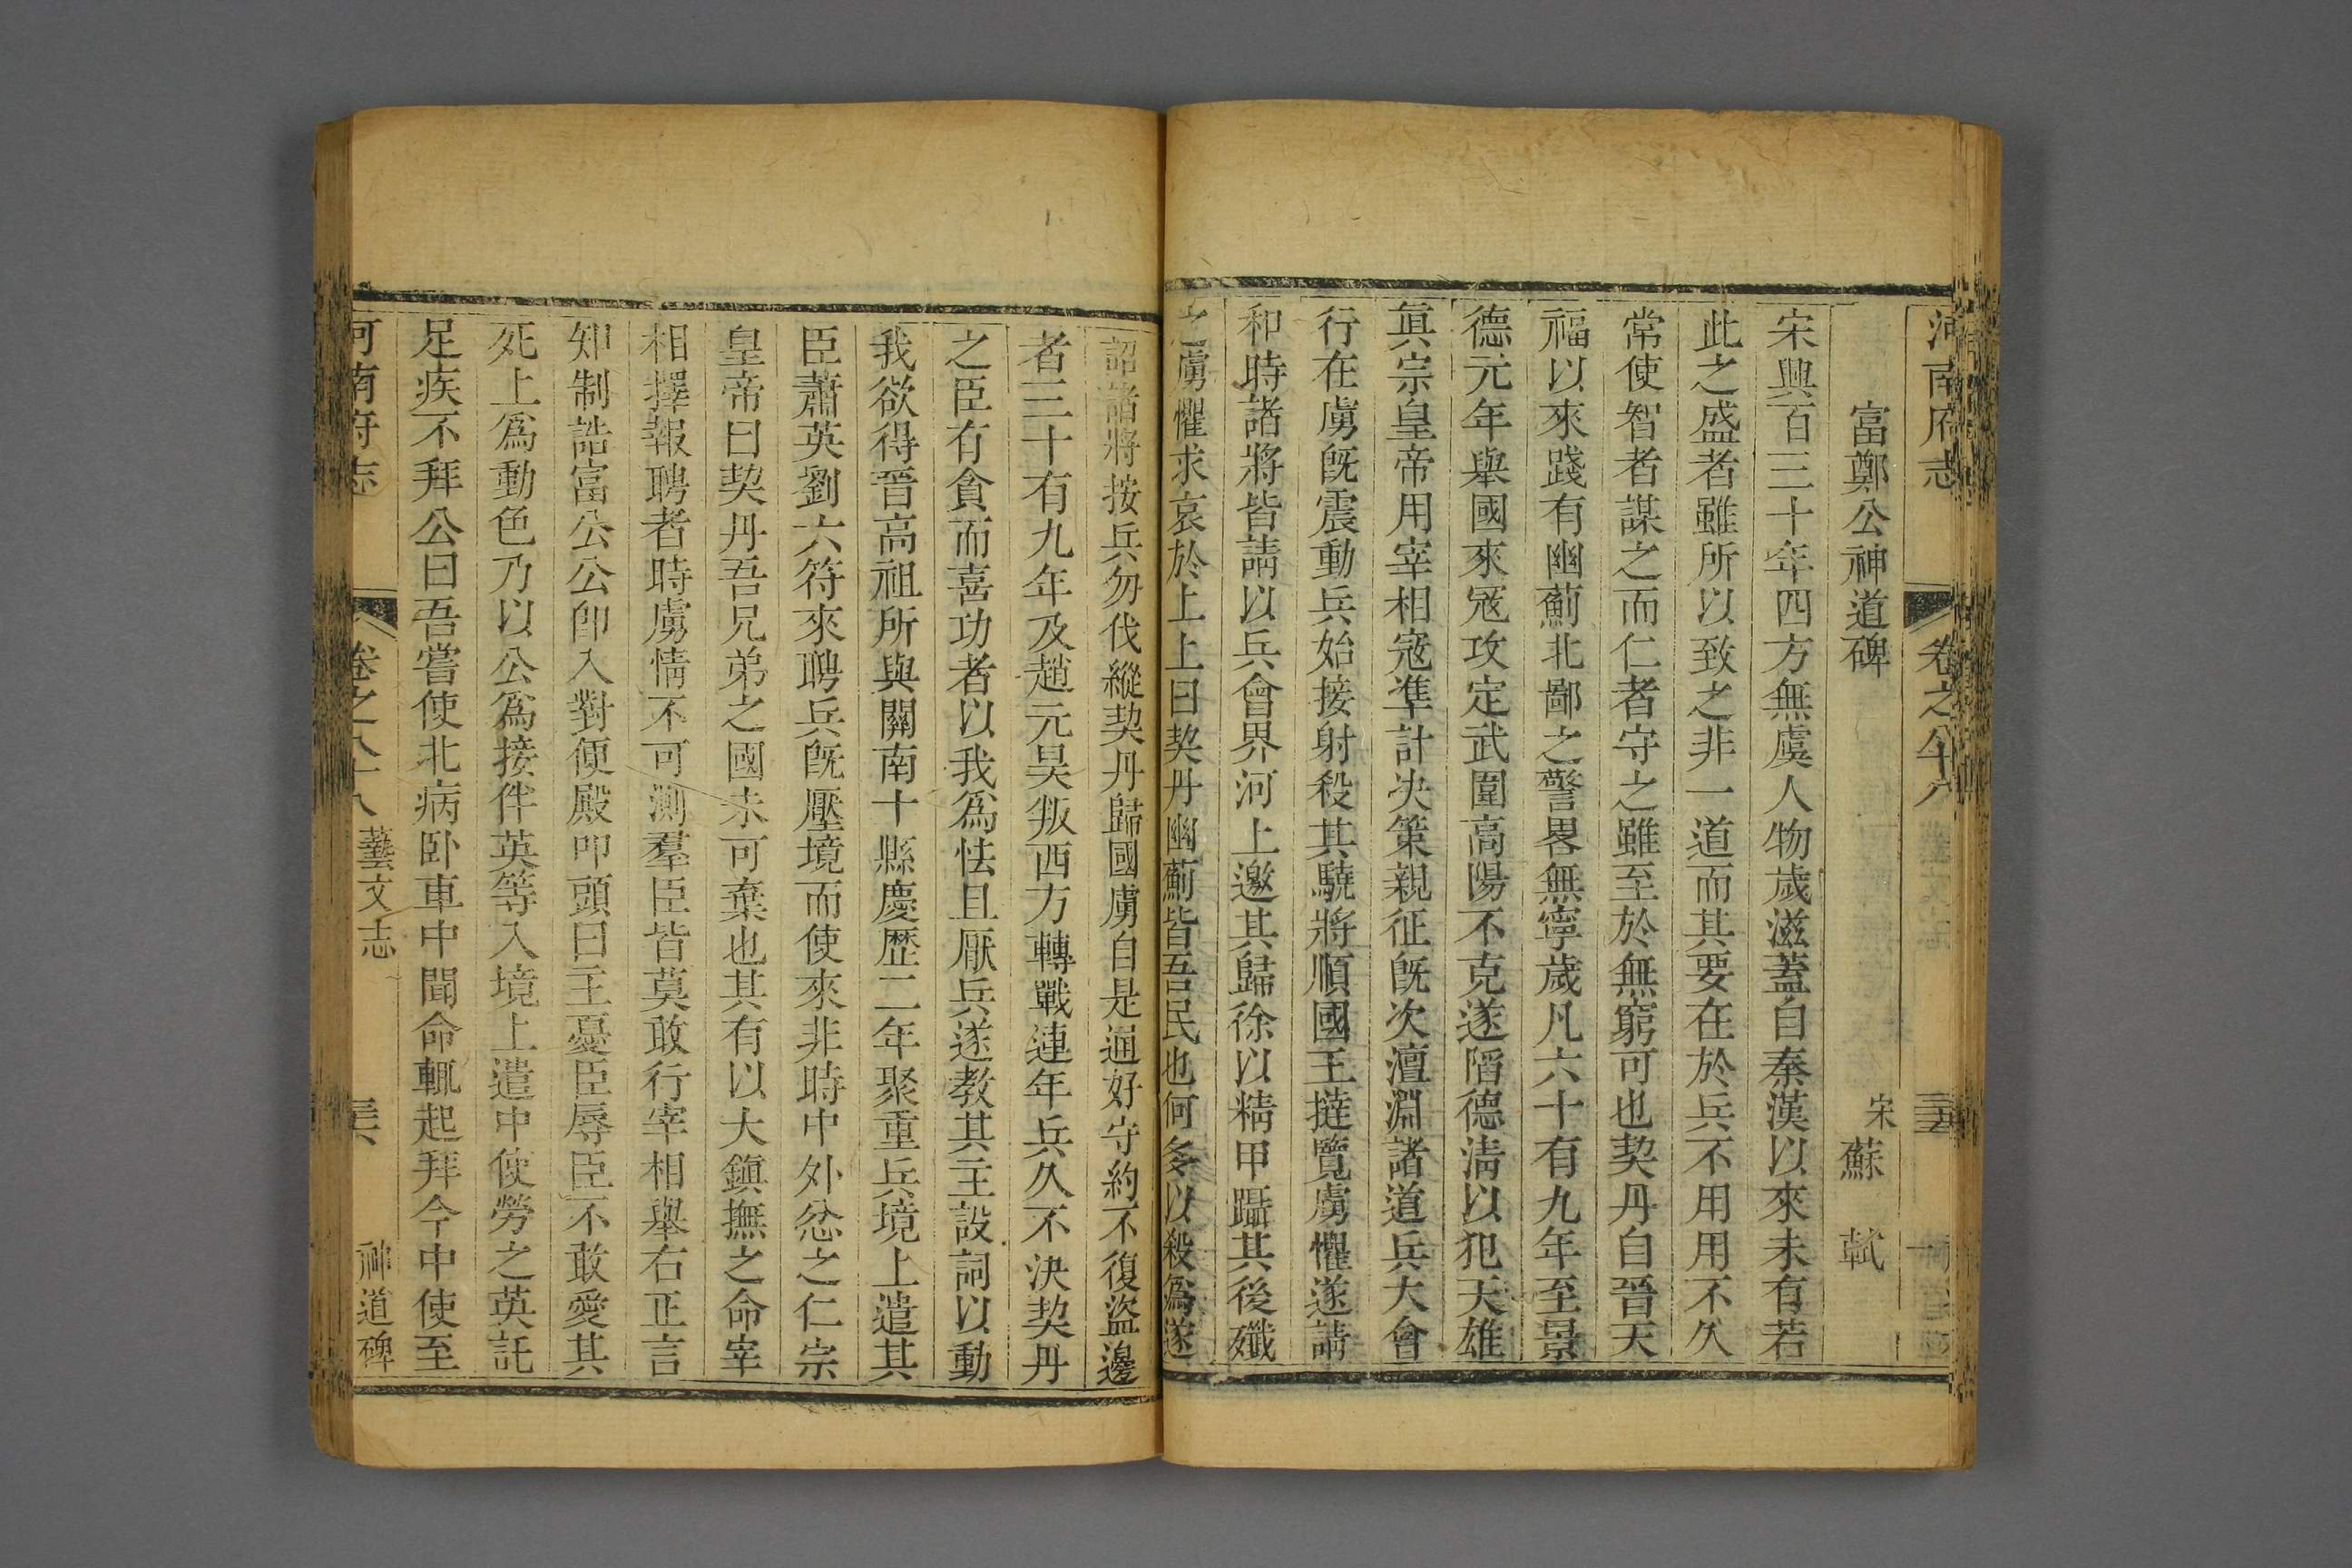 河南府志
卷之八十八
三十五
富鄭公神道碑
宋
蘇軾
宋興百三十年四方無虞人物歲滋蓋自秦漢以來未有若
此之盛者雖所以致之非一道而其要在於兵不用用不久
常使智者謀之而仁者守之雖至於無窮可也契丹自晉天
福以來踐有幽薊北鄙之警畧無寧歲凡六十有九年至景
德元年舉國來寇攻定武圍高陽不克遂陷德清以犯天雄
眞宗皇帝用宰相寇凖計决策親征旣次澶淵諸道兵大會
行在虜旣震動兵始接射殺其驍將順國王撻覽虜懼遂請
和時諸將皆請以兵會界河上邀其歸徐以精甲躡其後殲
之虜懼求哀於上上曰契丹幽薊皆吾民也何多以殺爲遂
詔諸將按兵勿伐縱契丹歸國虜自是通好守約不復盜邊
者三十有九年及趙元昊叛西方轉戰連年兵久不決契丹
之臣有貪而喜功者以我爲怯且厭兵遂教其主設詞以動
我欲得晉高祖所與關南十縣慶歷二年聚重兵境上遣其
臣蕭英劉六符來聘兵旣壓境而使來非時中外忿之仁宗
皇帝曰契丹吾兄弟之國未可棄也其有以大鎭撫之命宰
相擇報聘者時虜情不可測羣臣皆莫敢行宰相舉右正言
知制誥富公公卽入對便殿叩頭曰主憂臣辱臣不敢愛其
死上爲動色乃以公爲接伴英等入境上遣中使勞之英託
足疾不拜公曰吾嘗使北病卧車中聞命輒起拜今中使至
河南府志
卷之八十八
藝文志
三十六
神道碑